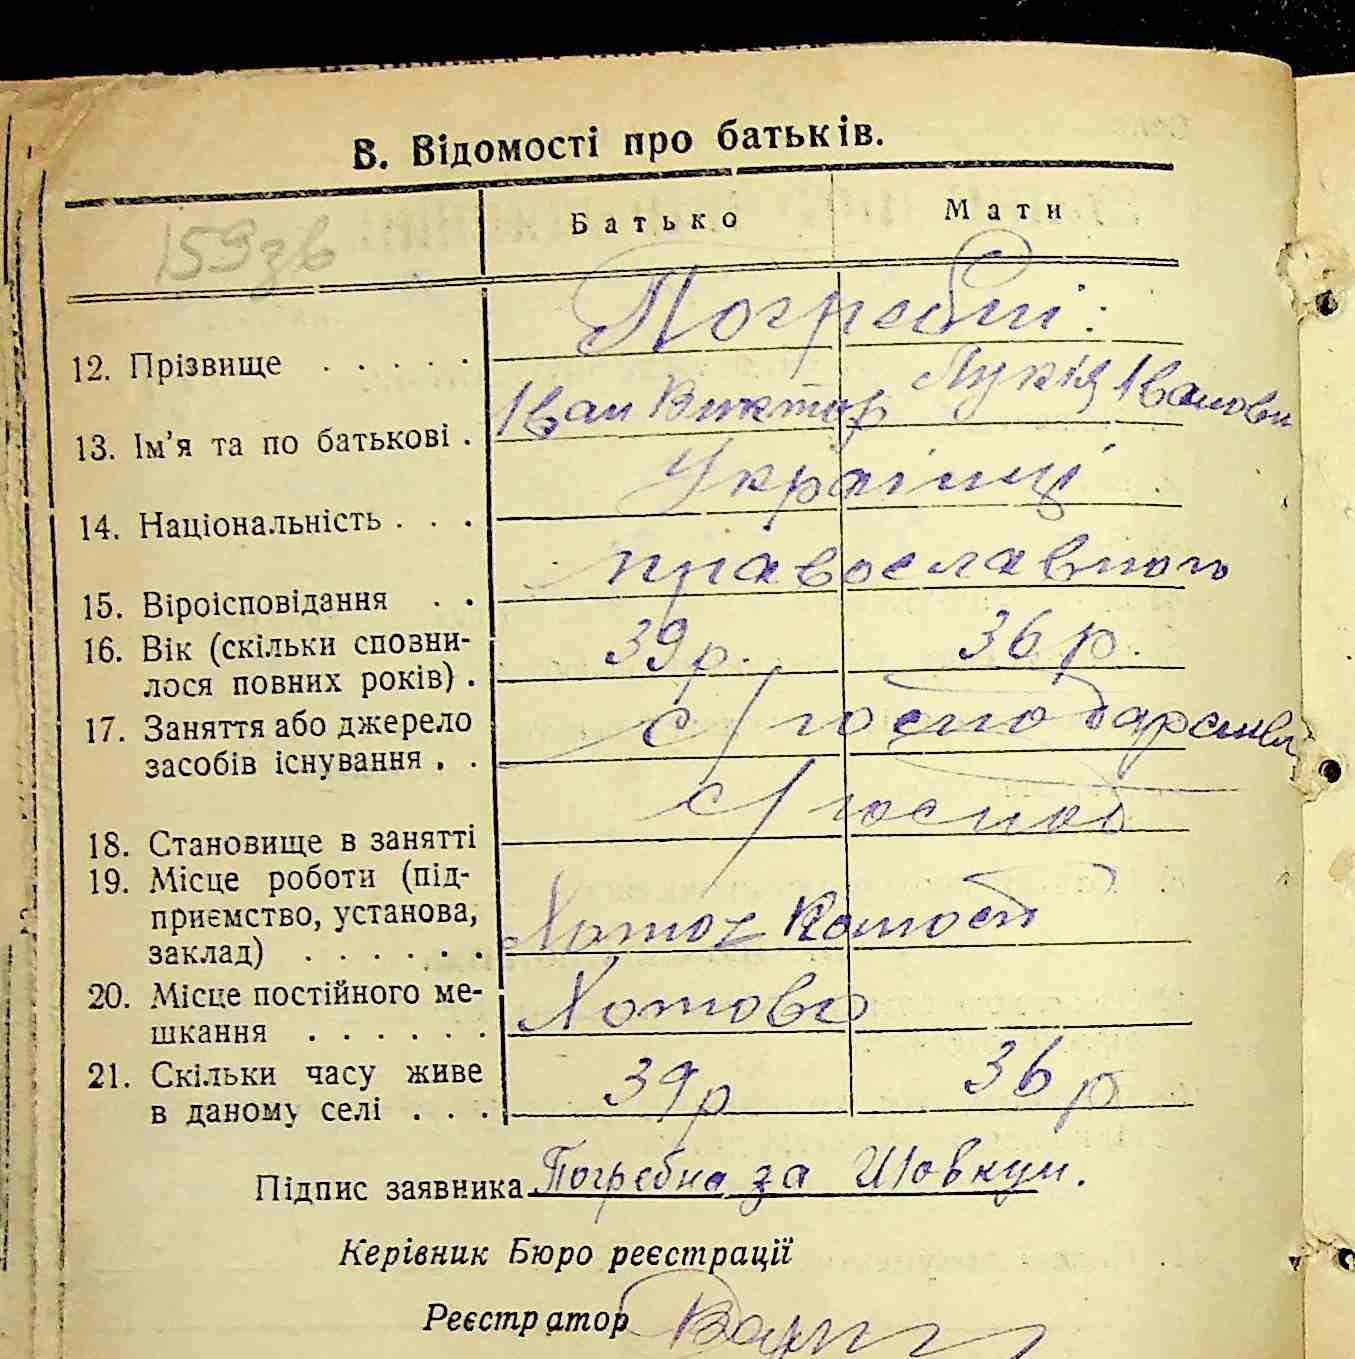 В. Відомості про батьків.
159зв
Батько Мати
12. Прізвище . . . . . Погребні:
13. Ім'я та по батькові . Іван Виктор Лукія Іванови
14. Національність . . . Українці
15. Віроісповідання . . православного
16. Вік (скільки спозни-
лося повних років) . 39 р. 36 р.
17. Заняття або джерело
засобів існування . . с/господарства
18. Становище в занятті с/господ
19. Місце роботи (під-
приємство, установа,
заклад) . . . . . .
20. Місце постійного ме-
шкання . . . . . . Хотово
21. Скільки часу живе
в даному селі . . . 39 р 36 р
Підпис заявника Погребна за Шовкун.
Керівник Бюро реєстрації
Реєстратор